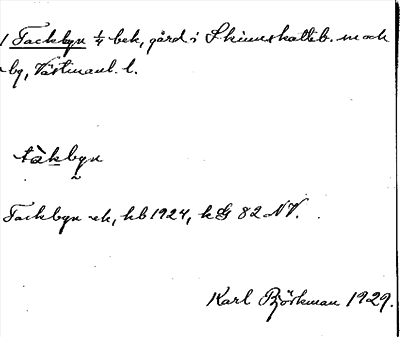 1 Tackbyn ¼ bek, gård i Skinnskatteb. sn och
by, Västmanl. l.
tàkbyn
2
Tackbyn ek, kb 1924, kG 82 NV.
Karl Björkman 1929.